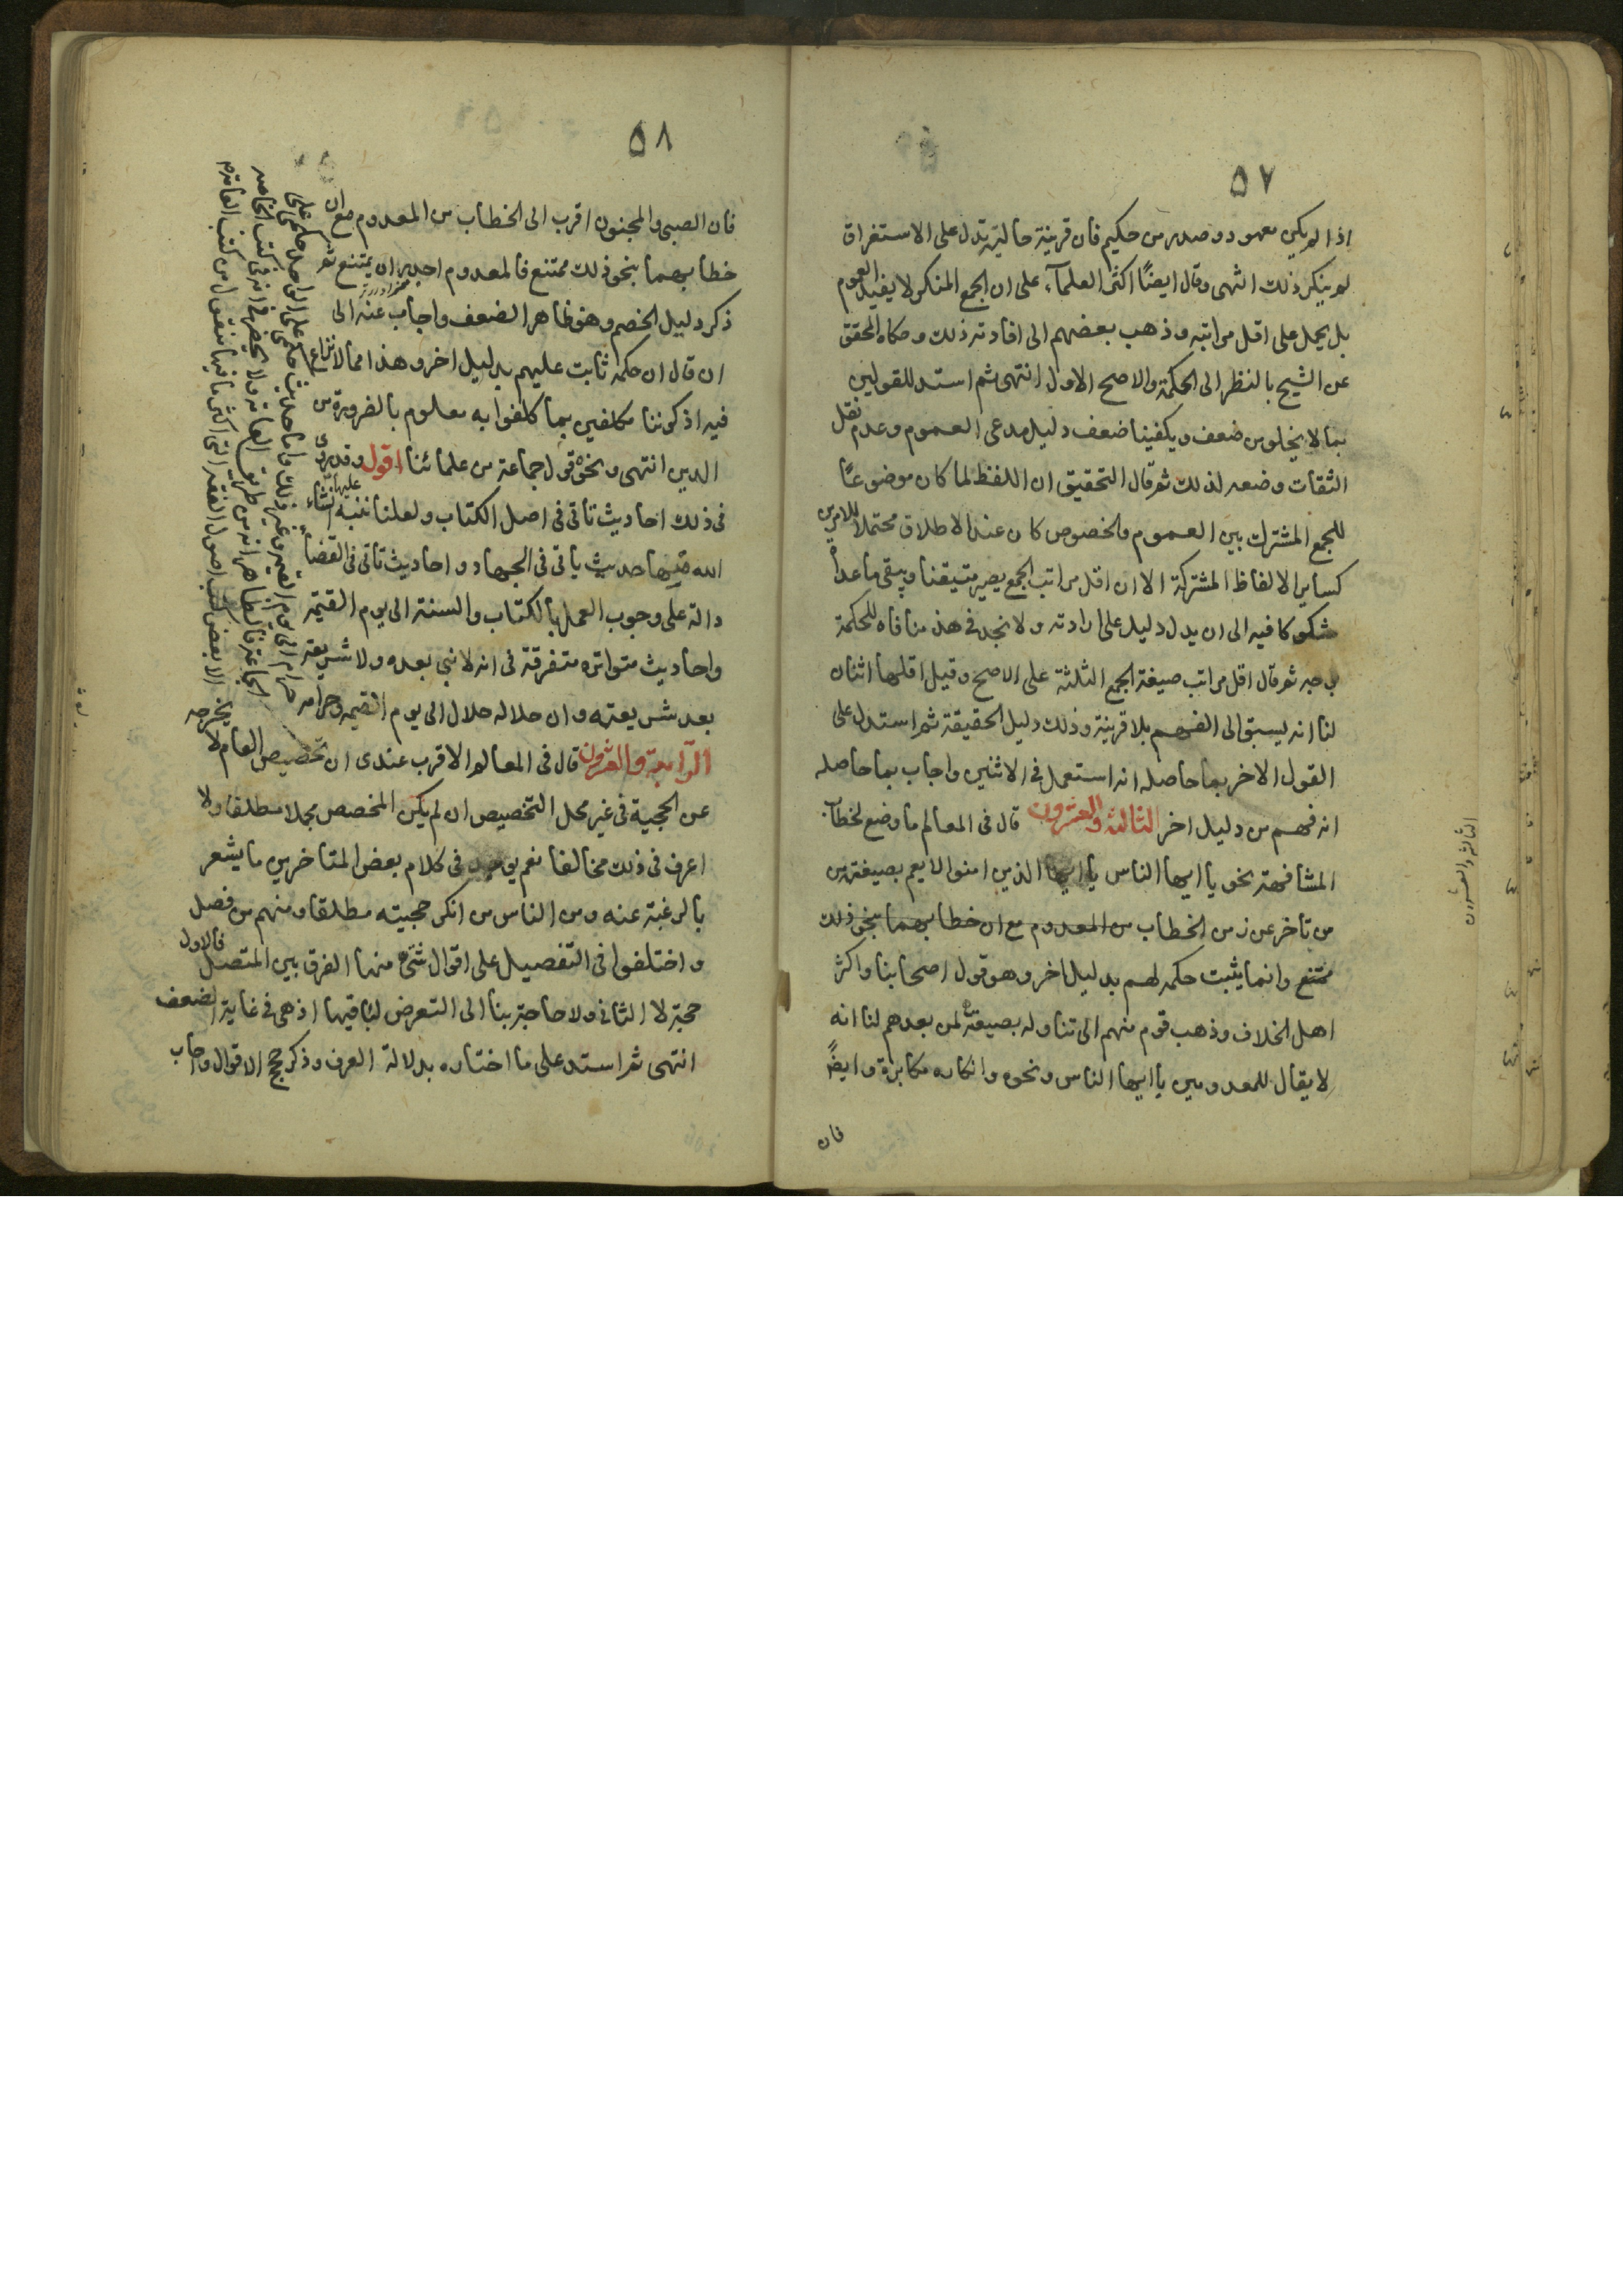 ٥٧
اذا لم يكن معهود وصدر من حكيم فان قرينة حالية تدل على الاستغراق
لم ينكر ذلك انتهى وقال ايضًا اكثر العلمآء على ان الجمع المنكر لا يفيد العموم
بل يحمل على اقل مراتبه وذهب بعضهم الى افادته ذلك وحكاه المحقق
عن الشيخ بالنظر الى الحكمة والاصح الاول انتهى ثم استدل للقولين
بما لا يخلو من ضعف ويكفينا ضعف دليل مدعى العموم وعدم نقل
الثقات وضعه لذلك ثم قال التحقيق ان اللفظ لما كان موضوعًا
للجمع المشترك بين العموم والخصوص كان عند الاطلاق محتملا للامرين
كساير الالفاظ المشتركة الا ان اقل مراتب الجمع يصير متيقنا ويبقى ما عداه
مشكوكا فيه الى ان يدل دليل على ارادته ولا نجد فى هذ منافاه للحكمة
بوجه ثم قال اقل مراتب صيغة الجمع الثلثة على الاصح وقيل اقلها اثنان
لنا انه يسبق الى الفهم بلا قرينة وذلك دليل الحقيقة ثم استدل على
القول الاخر بما حاصله انه استعمل فى الاثنين واجاب بما حاصله
انه فهم من دليل اخر الثالثة والعشرون قال فى المعالم ما وضع لخطاب
المشافهة نحو يا ايها الناس يا ايها الذين امنوا لا يعم بصيغته من
من تأخر عن زمن الخطاب من المعدوم مع ان خطابهما بنحو ذلك
ممتنع وانما يثبت حكمه لهم بدليل اخر وهو قول اصحابنا واكثر
اهل الخلاف وذهب قوم منهم الى تناوله بصيغته لمن بعدهم لنا انه
لا يقال للمعدومين يا ايها الناس ونحوه وانكاره مكابرة وايضًا
فان
الثالثة والعشرون
٥٨
فان الصبى والمجنون اقرب الى الخطاب من المعدوم مع ان
خطابهما بنحو ذلك ممتنع فالمعدوم اجدر ان يمتنع ثم
ذكر دليل الخصم وهو ظاهر الضعف واجاب عنه الى
ان قال ان حكمه ثابت عليهم بدليل اخر وهذا مما لا نزاع
فيه اذ كوننا مكلفين بما كلفوا به معلوم بالضرورة من
الدين انتهى ونحوه قول جماعة من علمائنا اقول وقد روى
فى ذلك احاديث تأتى فى اصل الكتاب ولعلنا ننبه عليها انشاء
الله منها حديث يأتى فى الجهاد واحاديث تأتى فى القضاء
دالة على وجوب العمل بالكتاب والسنة الى يوم القيمة
واحاديث متواتره متفرقة فى انه لا نبى بعده ولا شريعة
بعد شريعته وان حلاله حلال الى يوم القيمه وحرامه
حرام الى يوم القيمه وغير ذلك واما حديث حكمى على الواحد حكمى على
الجماعة فالظاهر انه من طريق العامة ولا يحضرنى انه فى كتب الخاصه
الا بعض كتب اصول الفقه التى اكثر ما فيها منقول من كتب العامه
الرابعة والعشرون قال فى المعالم الاقرب عندى ان تخصيص العام لا يخرجه
عن الحجية فى غير محل التخصيص ان لم يكن المخصص مجملا مطلقا ولا
اعرف فى ذلك مخالفا نعم يوجد فى كلام بعض المتأخرين ما يشعر
بالرغبة عنه ومن الناس من انكر حجيته مطلقا ومنهم من فصل
واختلفوا فى التفصيل على اقوال شتى منها الفرق بين المتصل فالاول
حجة لا الثانى ولا حاجة بنا الى التعرض لباقيها اذ هى فى غاية الضعف
انتهى ثم استدل على ما اختاره بدلالة العرف وذكر حجج الاقوال واجاب